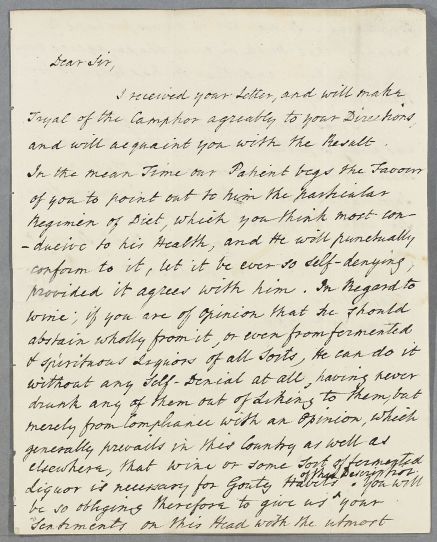 Dear Sir,
I received your Letter, and will make
Tryal of the Camphor agreably to your Directions,
and will acquaint you with the Result.
In the mean Time our Patient begs the Favour
of you to point out to him the particular
Regimen of Diet, which you think most con-
-ducive to his Health, and He will punctually
conform to it, let it be ever so self-denying,
provided it agrees with him. In Regard to
Wine; if you are of Opinion that He should
abstain wholly from it, or even from fermented
& spirituous Liquors of all Sorts, He can do it
without any Self-Denial at all, having never
drunk any of them out of Liking to them, but
merely from Compliance with an Opinion, which
generally prevails in this Country as well as
elsewhere, that wine or some Sort of fermented
Liquor is necessary for Gouty Habits. You will
be so obliging therefore to give us ^ your
Sentiments on this Head with the utmost